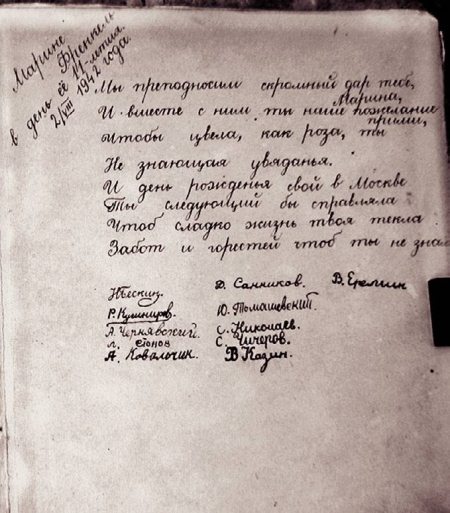 Марине Френкель
в день её 11-летия.
2/VIII 1942 года.
Мы преподносим скромный дар тебе, Марина,
И вместе с ним ты наше пожелание прими,
Чтобы цвела, как роза, ты
Не знающая увяданья.
И день рожденья свой в Москве
Ты следующий бы справляла
Чтоб сладко жизнь твоя текла
Забот и горестей чтоб ты не знал
Д. Санников. В. Еремин
Р. Кушниров. Ю. Томашевский.
А. Чернявский. С. Николаев.
Л. С. Чичеров.
А. Ковальчик. В Казин.